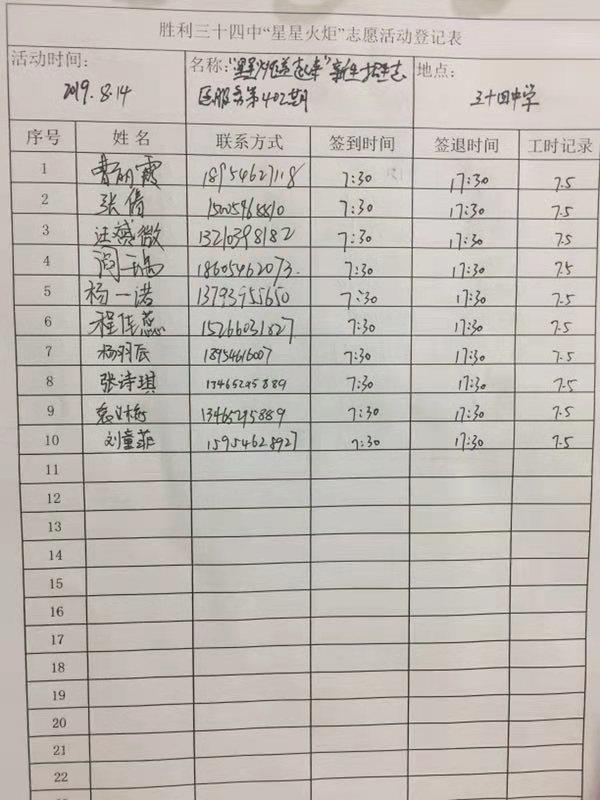 胜利三十四中“星星火炬”志愿活动登记表
活动时间: 名称:“星星火炬送志来”新生招生志 地点:
2019.8.14 愿服务第402期 三十四中学
序号 姓名 联系方式 签到时间 签退时间 工时记录
1 曹丽霞 18954627118 7:30 17:30 7.5
2 张倩 7:30 17:30 7.5
3 汪薇 13210398182 7:30 17:30 7.5
4 闫瑞 18605462073 7:30 17:30 7.5
5 杨一诺 13793955650 7:30 17:30 7.5
6 程佳蕊 15266031827 7:30 17:30 7.5
7 杨羽辰 18954616007 7:30 17:30 7.5
8 张诗琪 13465295889 7:30 17:30 7.5
9 13465295889 7:30 17:30 7.5
10 刘童菲 15954628927 7:30 17:30 7.5
11
12
13
14
15
16
17
18
19
20
21
22